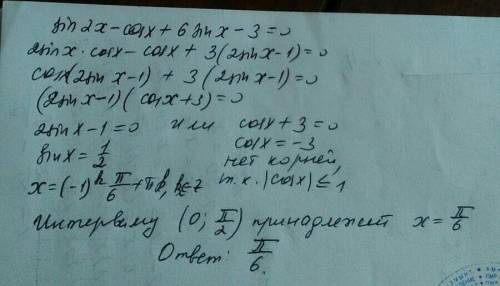 sin 2x - cos x + 6 sin x - 3 = 0
2 sin x · cos x - cos x + 3(2 sin x - 1) = 0
cos x(2 sin x - 1) + 3(2 sin x - 1) = 0
(2 sin x - 1)(cos x + 3) = 0
2 sin x - 1 = 0 или cos x + 3 = 0
sin x = 1/2 cos x = -3
нет корней,
x = (-1)^k π/6 + πk, k∈Z т.к. |cos x| ≤ 1
Интервалу (0; π/2) принадлежит x = π/6
Ответ: π/6.